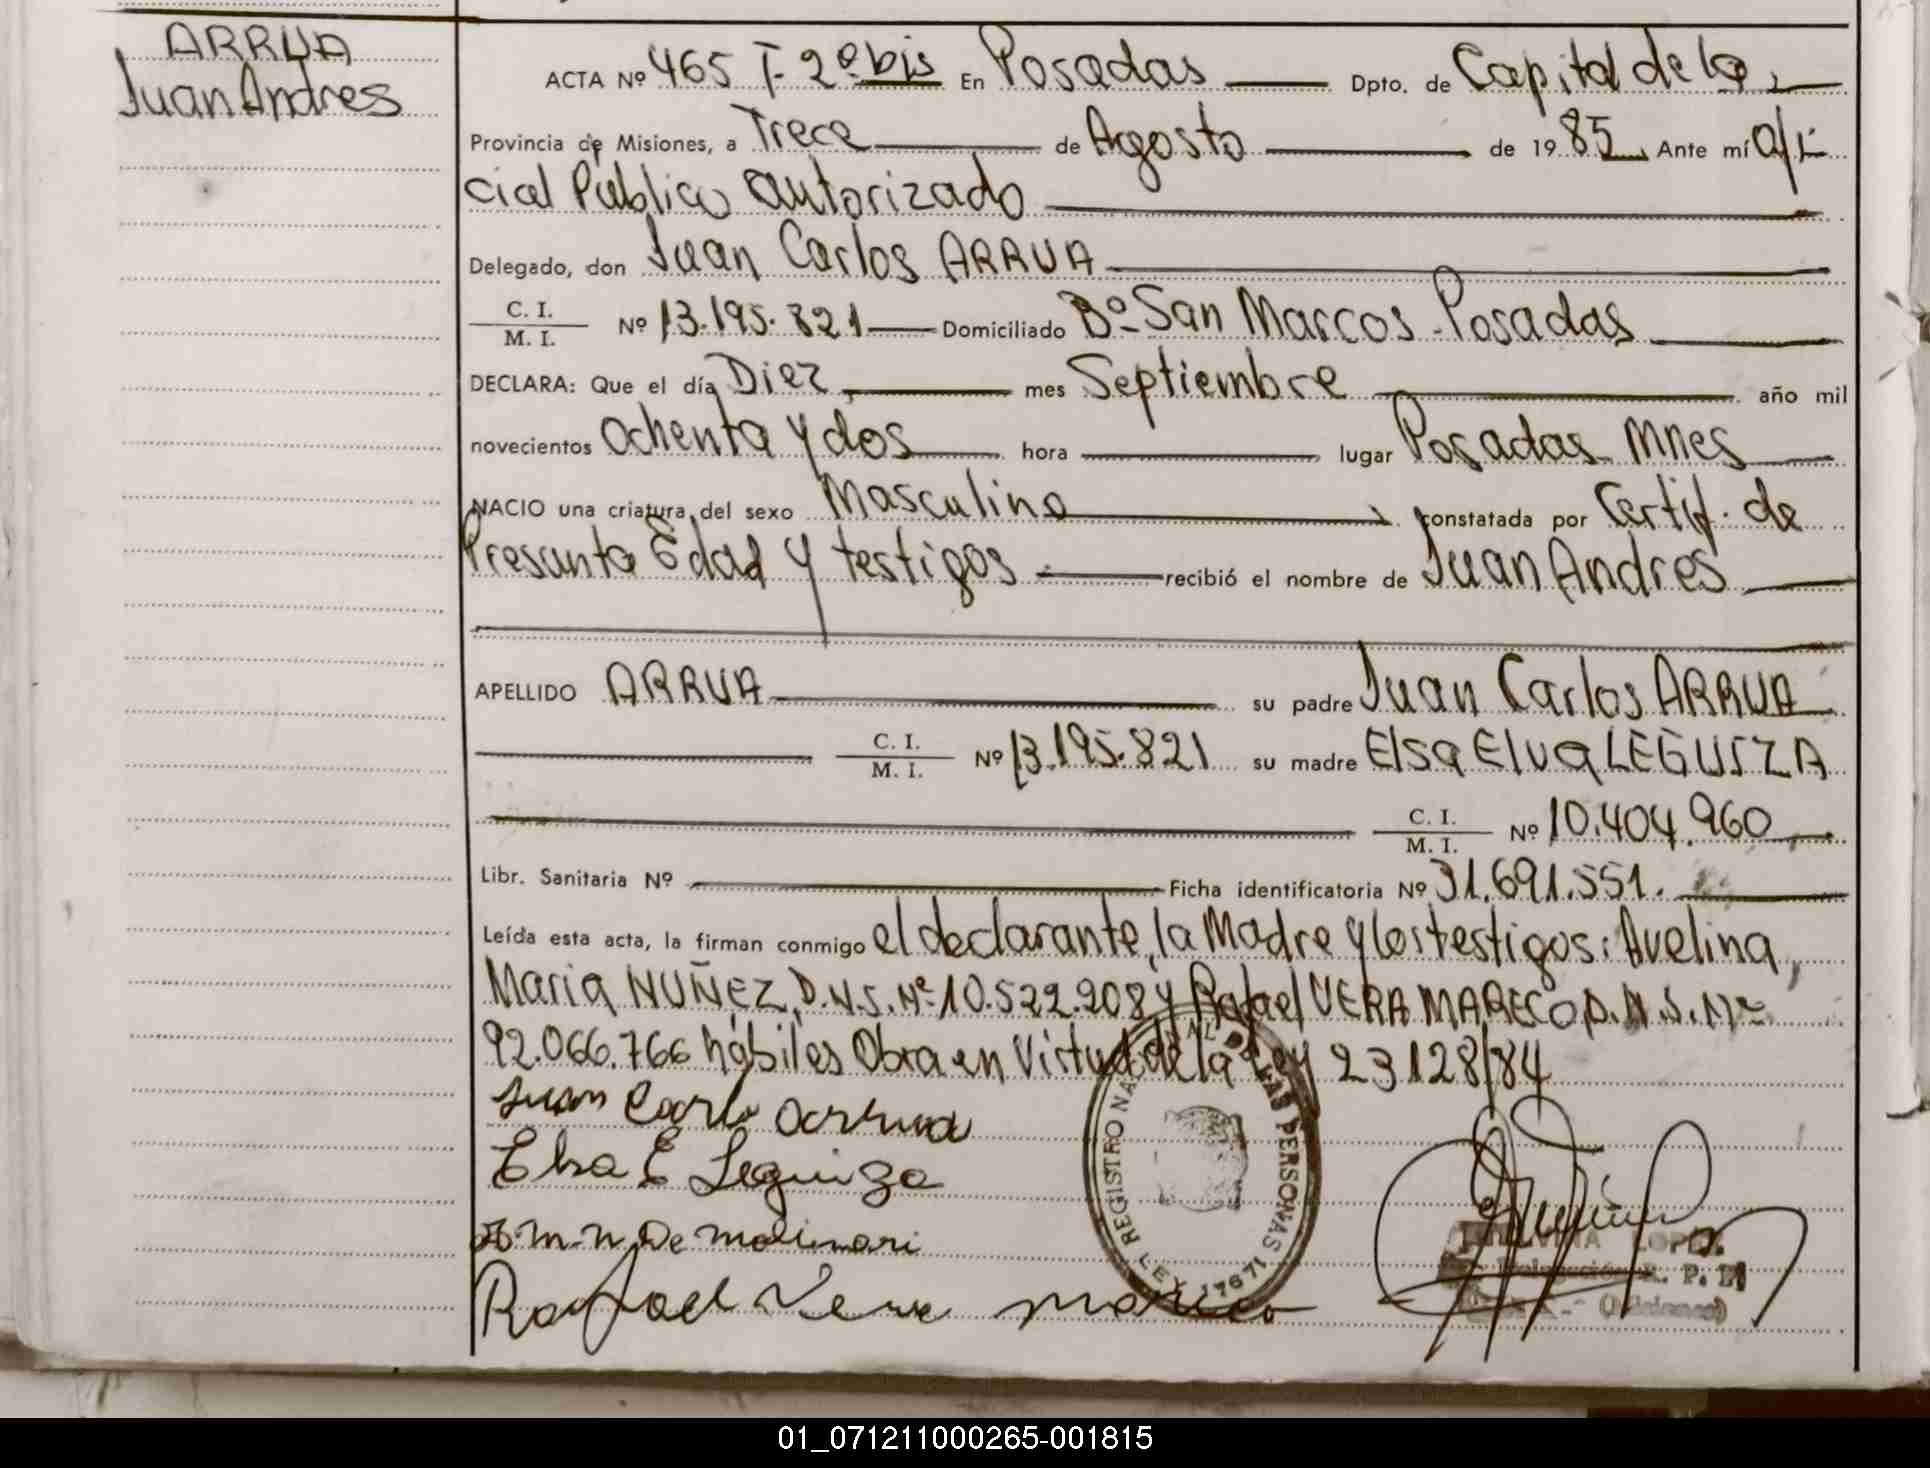 ARRUA
Juan Andres
ACTA Nº 465 T- 2º bis En Posadas Dpto. de Capital de la
Provincia de Misiones, a Trece de Agosto de 1985 Ante mí Ofi-
cial Publico autorizado
Delegado, don Juan Carlos ARRUA
C. I.
M. I. Nº 13.195.821 Domiciliado Bº San Marcos - Posadas
DECLARA: Que el día Diez mes Septiembre año mil
novecientos Ochenta y dos hora lugar Posadas Mnes
NACIO una criatura del sexo Masculino constatada por Certif. de
Presunta Edad y testigos recibió el nombre de Juan Andres
APELLIDO ARRUA su padre Juan Carlos ARRUA
C. I.
M. I. Nº 13.195.821 su madre Elsa Elva LEGUIZA
C. I.
M. I. Nº 10.404.960
Libr. Sanitaria Nº Ficha identificatoria Nº 31.691.551.
Leída esta acta, la firman conmigo el declarante, la Madre y los testigos: Avelina,
Maria NUÑEZ, D.N.I. Nº 10.522.208 y Rafael VERA MARECO, D.N.I. Nº
92.066.766 hábiles Obra en Virtud de la Ley 23128/84
Juan Carlo Arrua
Elsa E Leguiza
A. M. N. De Molinari
Rafael Vera Mareco
REGISTRO NACIONAL DE LAS PERSONAS
LEY 17671
LOPEZ
R. P.
(Misiones)
01_071211000265-001815